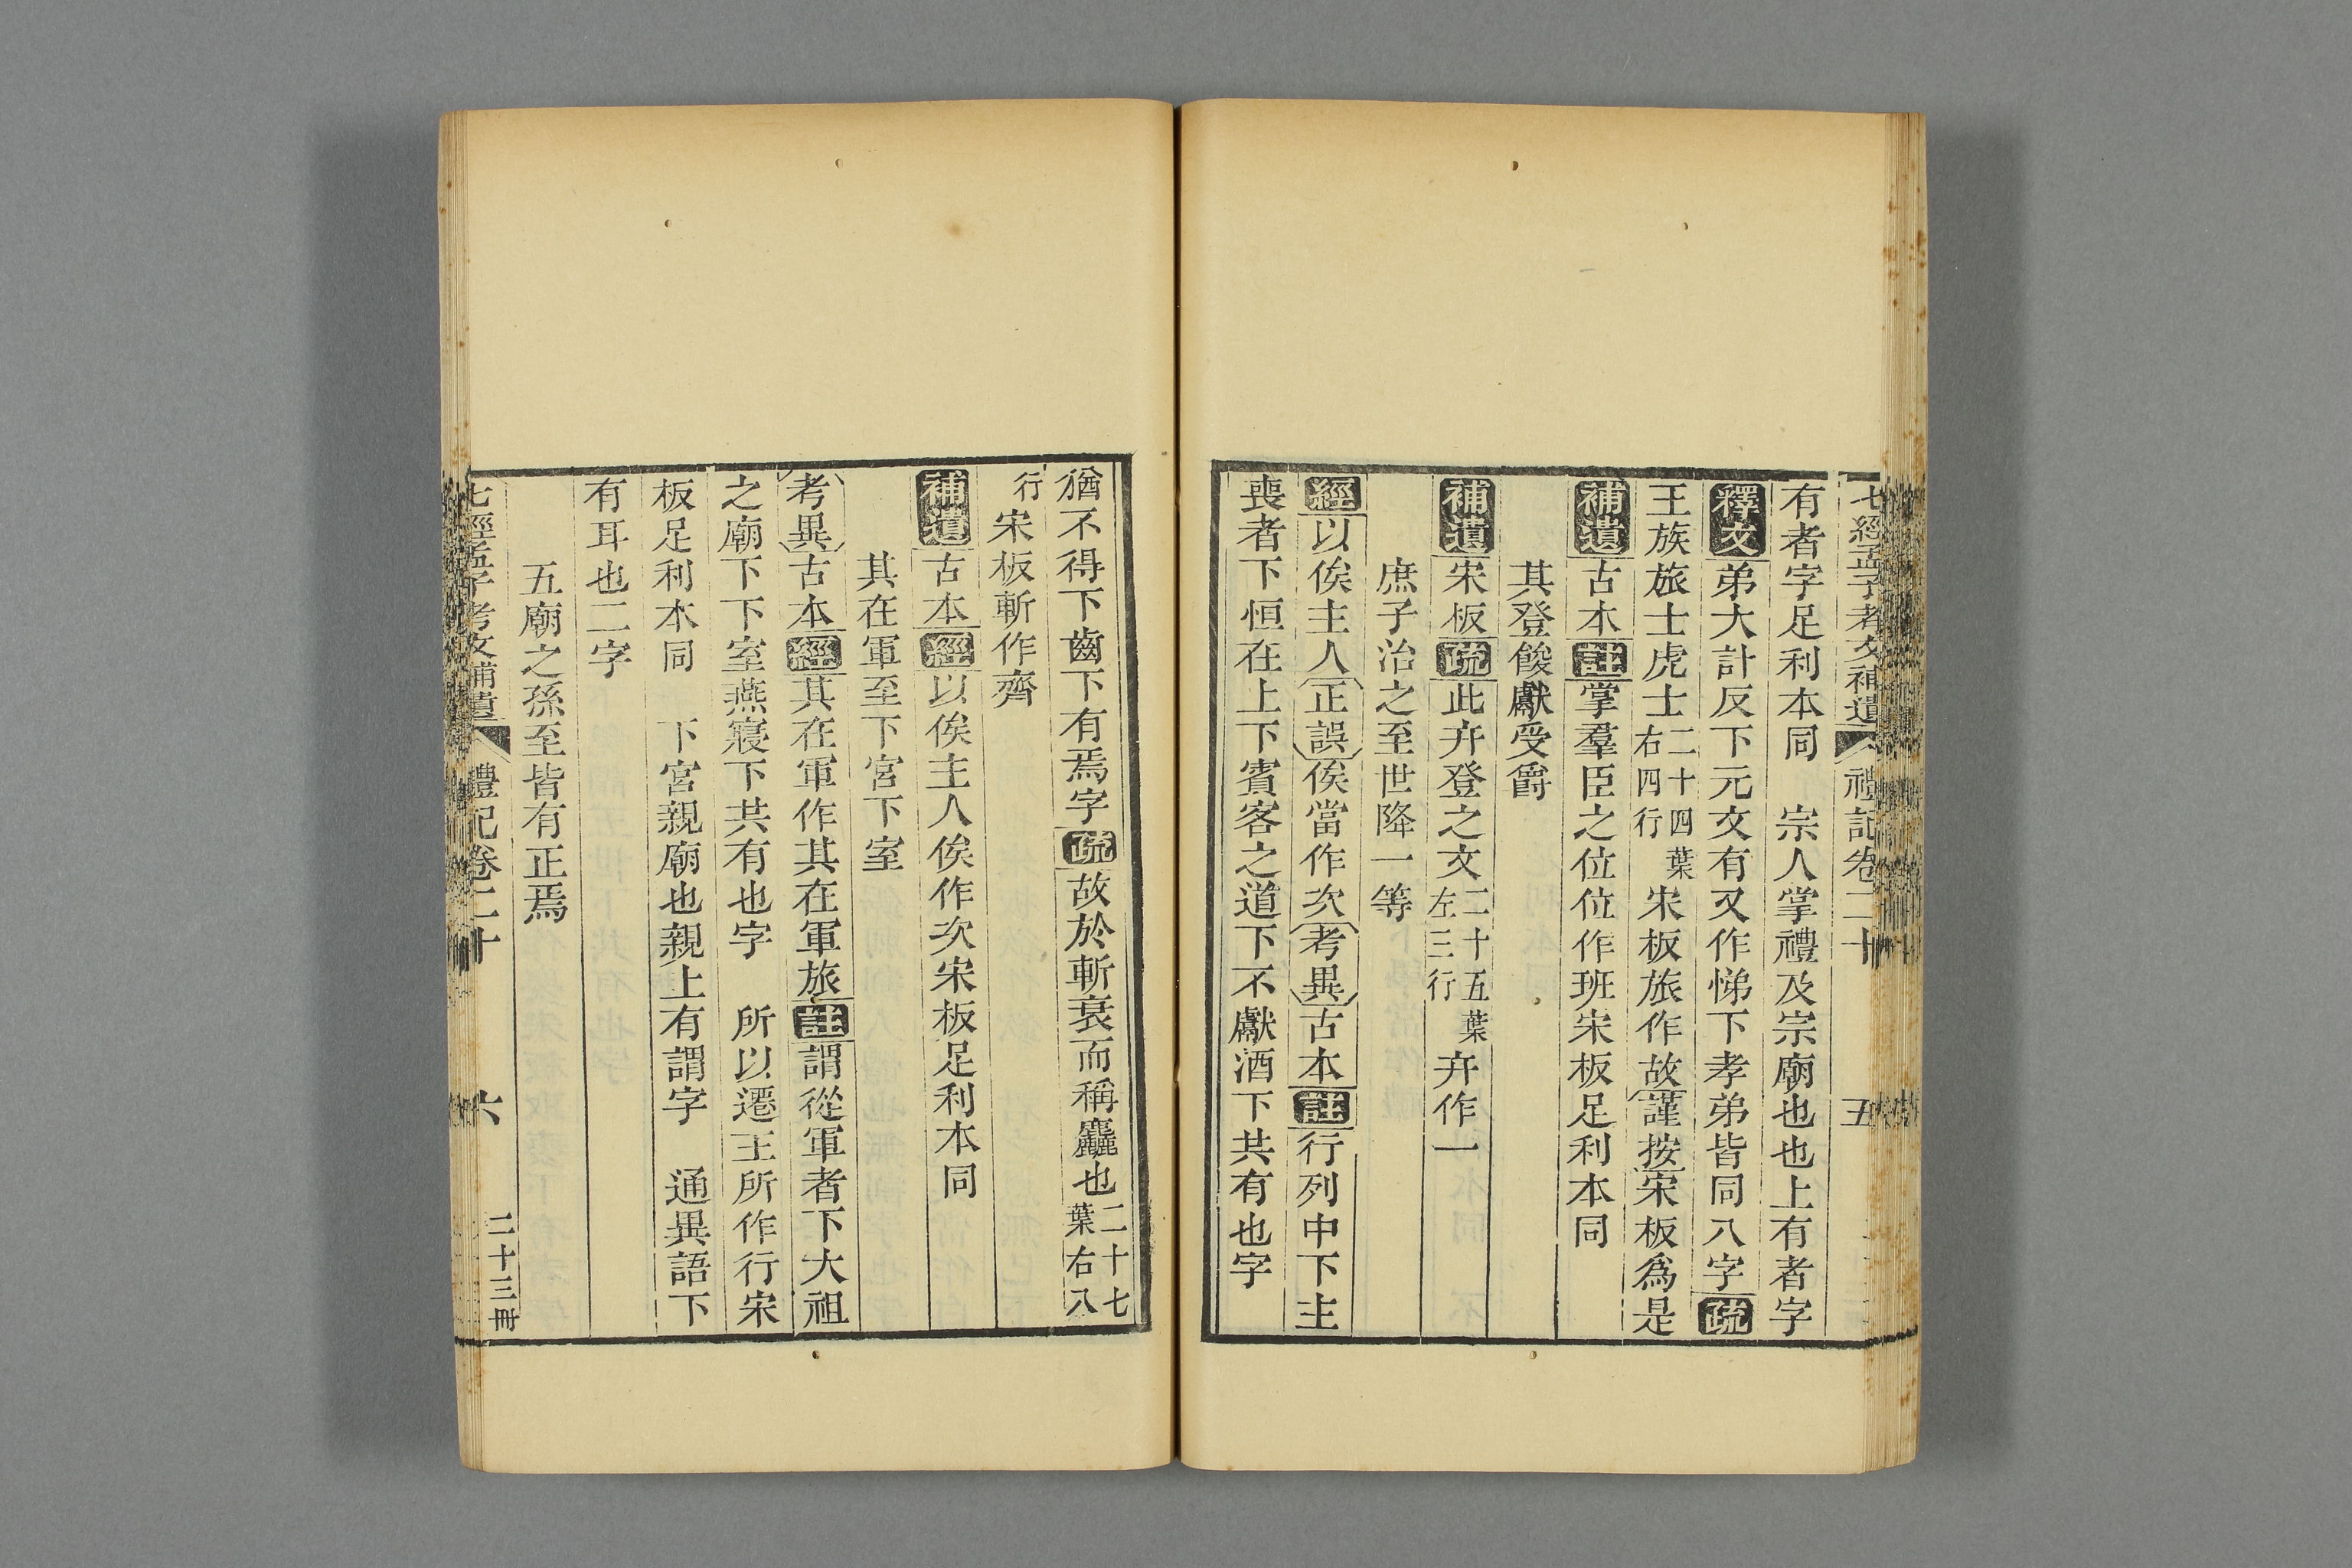 七經孟子考文補遺 禮記卷二十 五
有者字足利本同 宗人掌禮及宗廟也也上有者字
釋文弟大計反下元文有又作悌下孝弟皆同八字疏
王族旅士虎士二十四葉右四行宋板旅作故謹按宋板爲是
補遺古本註掌羣臣之位位作班宋板足利本同
其登餕獻受爵
補遺宋板疏此弁登之文二十五葉左三行弁作一
庶子治之至世降一等
經以俟主人正誤俟當作次考異古本註行列中下主
喪者下恒在上下賓客之道下不獻酒下共有也字
猶不得下齒下有焉字疏故於斬衰而稱麤也二十七葉右八
行宋板斬作齊
補遺古本經以俟主人俟作次宋板足利本同
其在軍至下宮下室
考異古本經其在軍作其在軍旅註謂從軍者下大祖
之廟下下室燕寢下共有也字 所以遷主所作行宋
板足利本同 下宮親廟也親上有謂字 通異語下
有耳也二字
五廟之孫至皆有正焉
七經孟子考文補遺 禮記卷二十 六 二十三冊